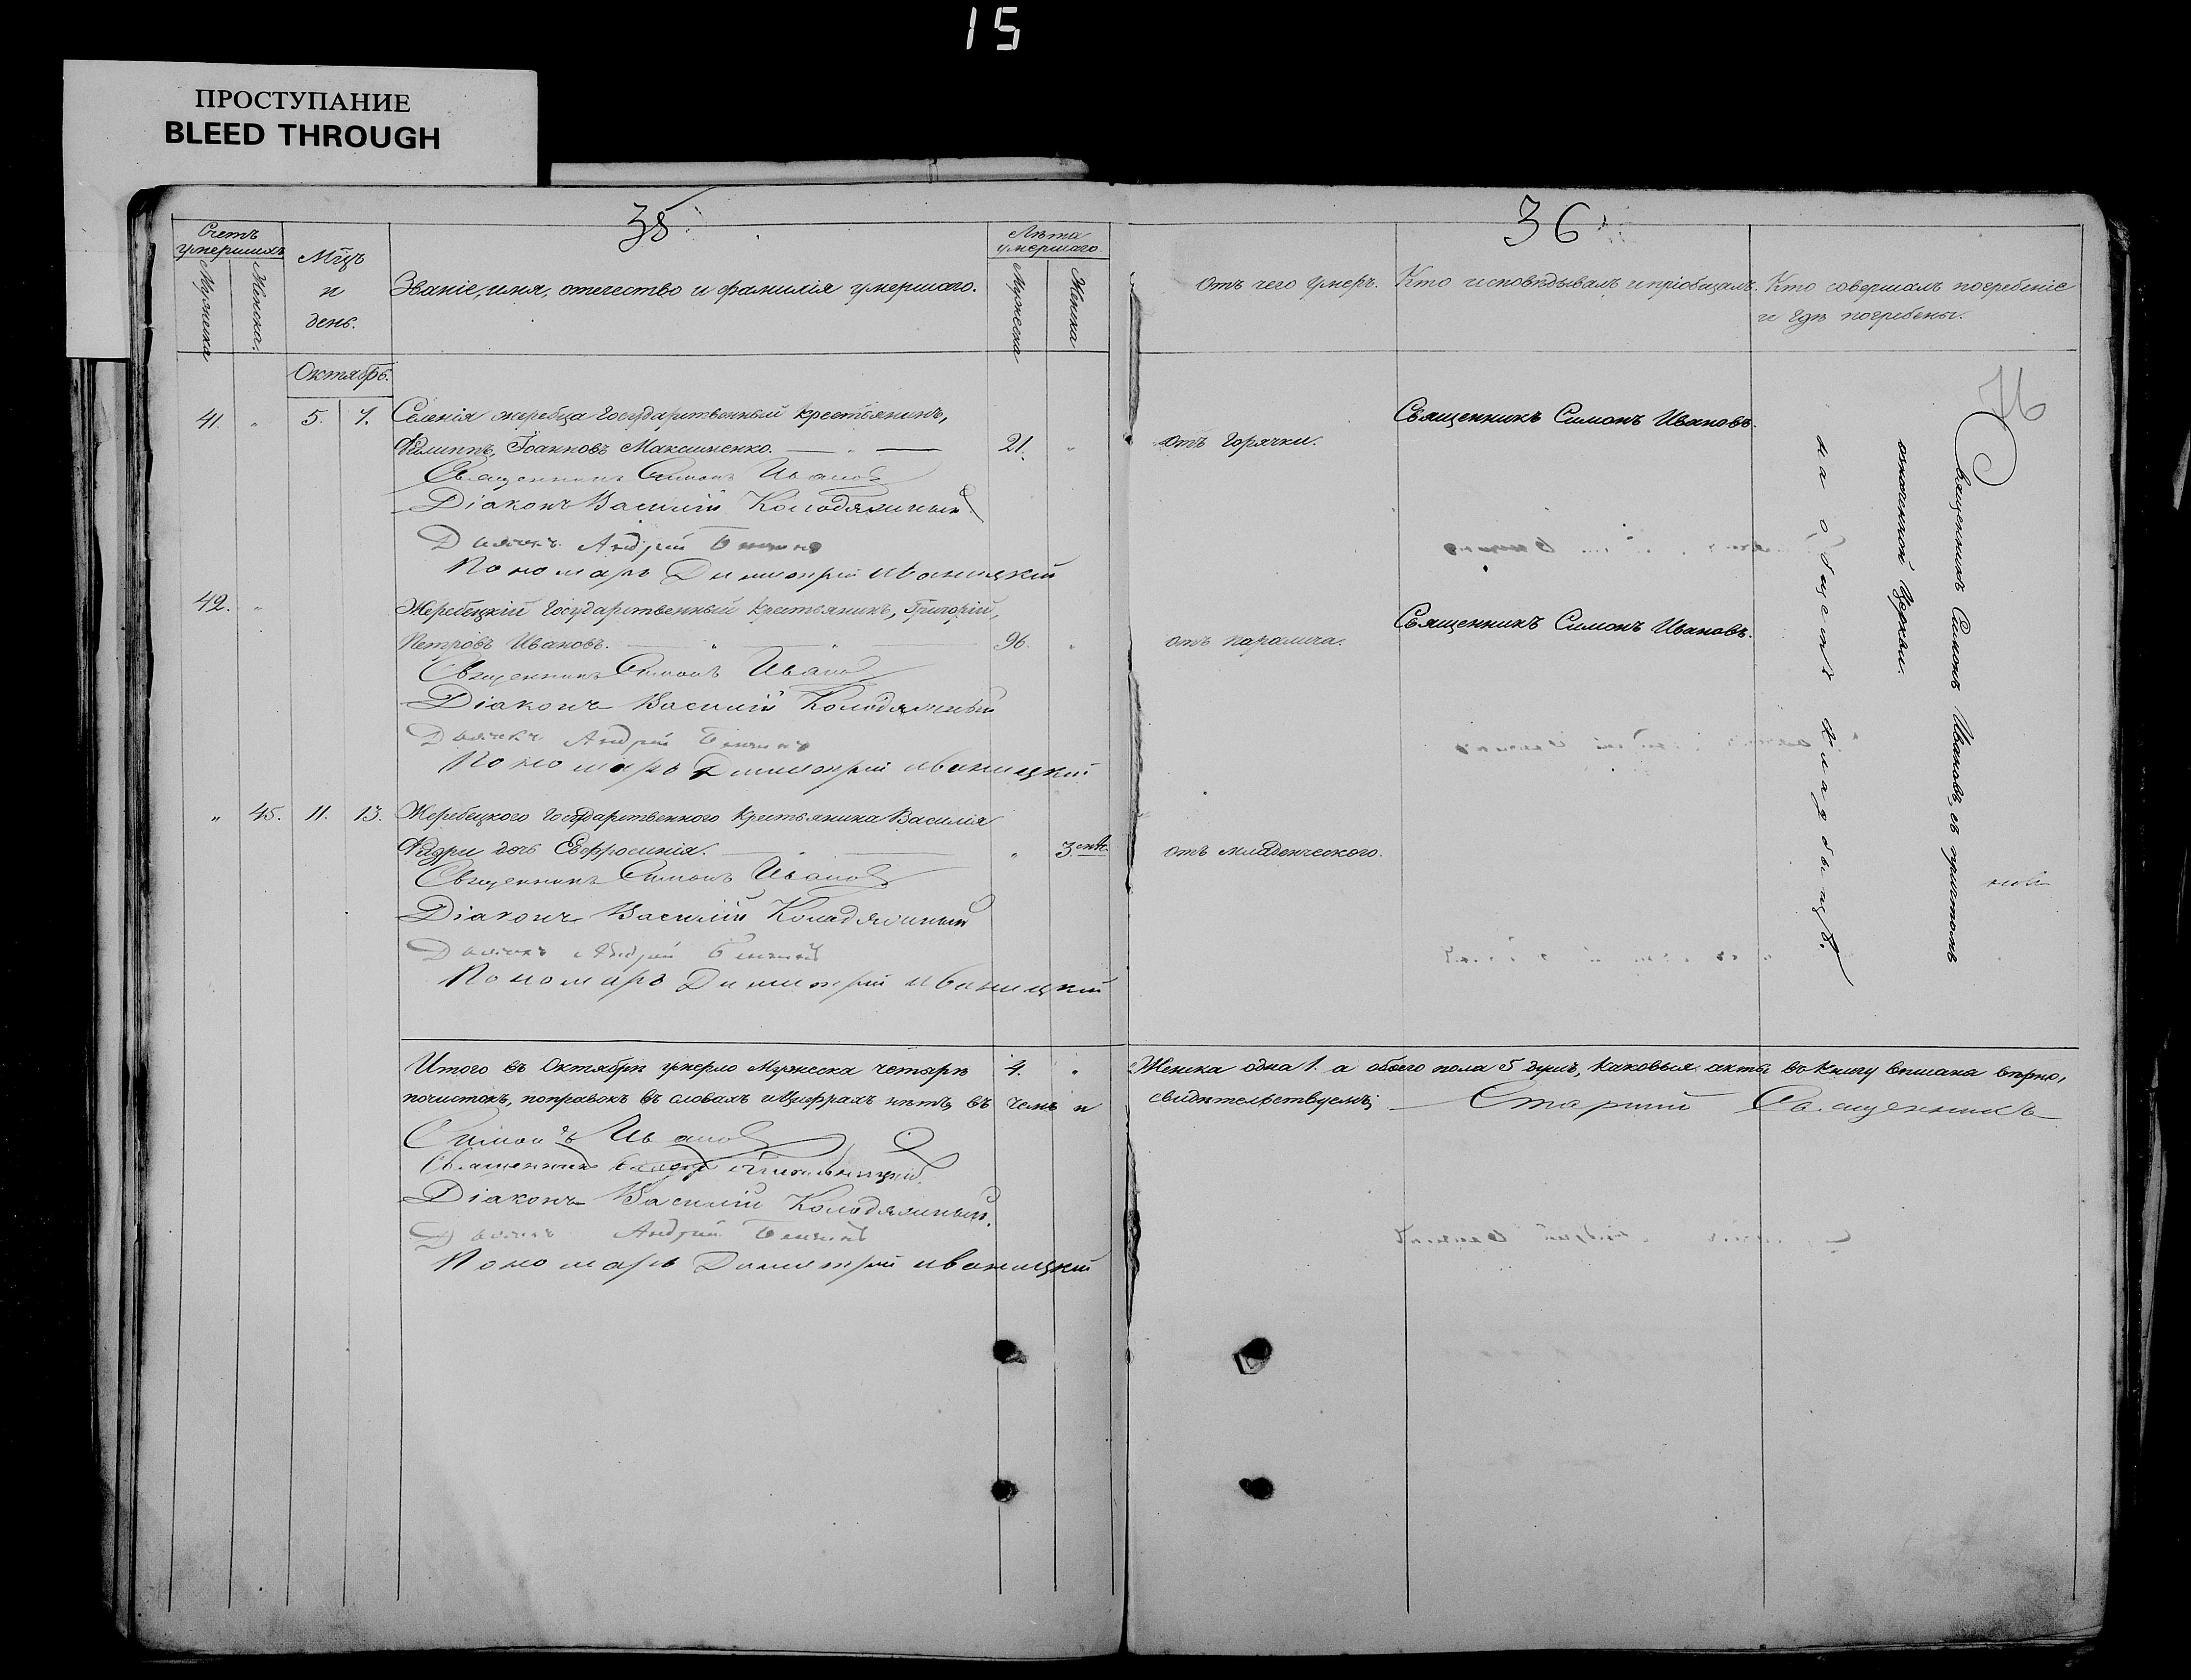 15
ПРОСТУПАНИЕ
BLEED THROUGH
35
Счетъ умершихъ
Мужеска
Женска.
Мцъ и день.
Званіе, имя, отечество и фамилія умершаго.
Лѣта умершаго
Мужеска
Женска
36
отъ чего умеръ.
Кто исповѣдывалъ и пріобщалъ.
Кто совершалъ погребеніе
и гдѣ погребены.
Октябрь.
41. " 5. 7. Селенія жеребца государственный крестьянинъ,
Филиппъ Іоанновъ Максименко. 21. "
Священникъ Симонъ Ивановъ
Діаконъ Василій Колодяжный
Дьячекъ Андрій
Пономарь Димитрій Иваницкій
42. " Жеребецкій государственный крестьянинъ, Григорій,
Петровъ Ивановъ. 96. "
Священникъ Симонъ Ивановъ
Діаконъ Василій Колодяжный
Дьячекъ Андрій
Пономарь Димитрій Иваницкій
" 45. 11. 13. Жеребецкого государственного крестьянина Василія
дочь Евфросинія. "
Священникъ Симонъ Ивановъ
Діаконъ Василій Колодяжный
Дьячекъ Андрій
Пономарь Димитрій Иваницкій
отъ горячки.
Священникъ Симонъ Ивановъ.
отъ паралича.
Священникъ Симонъ Ивановъ.
отъ младенческого.
Священникъ Симонъ Ивановъ, съ причтомъ
означенной Церкви.
на общемъ кладбищѣ.
Итого въ Октябрѣ умерло Мужеска четыре 4. " Женска одна 1. а обоего пола 5 душъ, каковыя акты въ книгу вписана вѣрно,
почистокъ, поправокъ въ словахъ и цифрахъ нѣтъ, въ чемъ и свидѣтельствуемъ; Старшій Священникъ
Симонъ Ивановъ
Священникъ
Діаконъ Василій Колодяжный.
Дьячекъ Андрій
Пономарь Димитрій Иваницкій